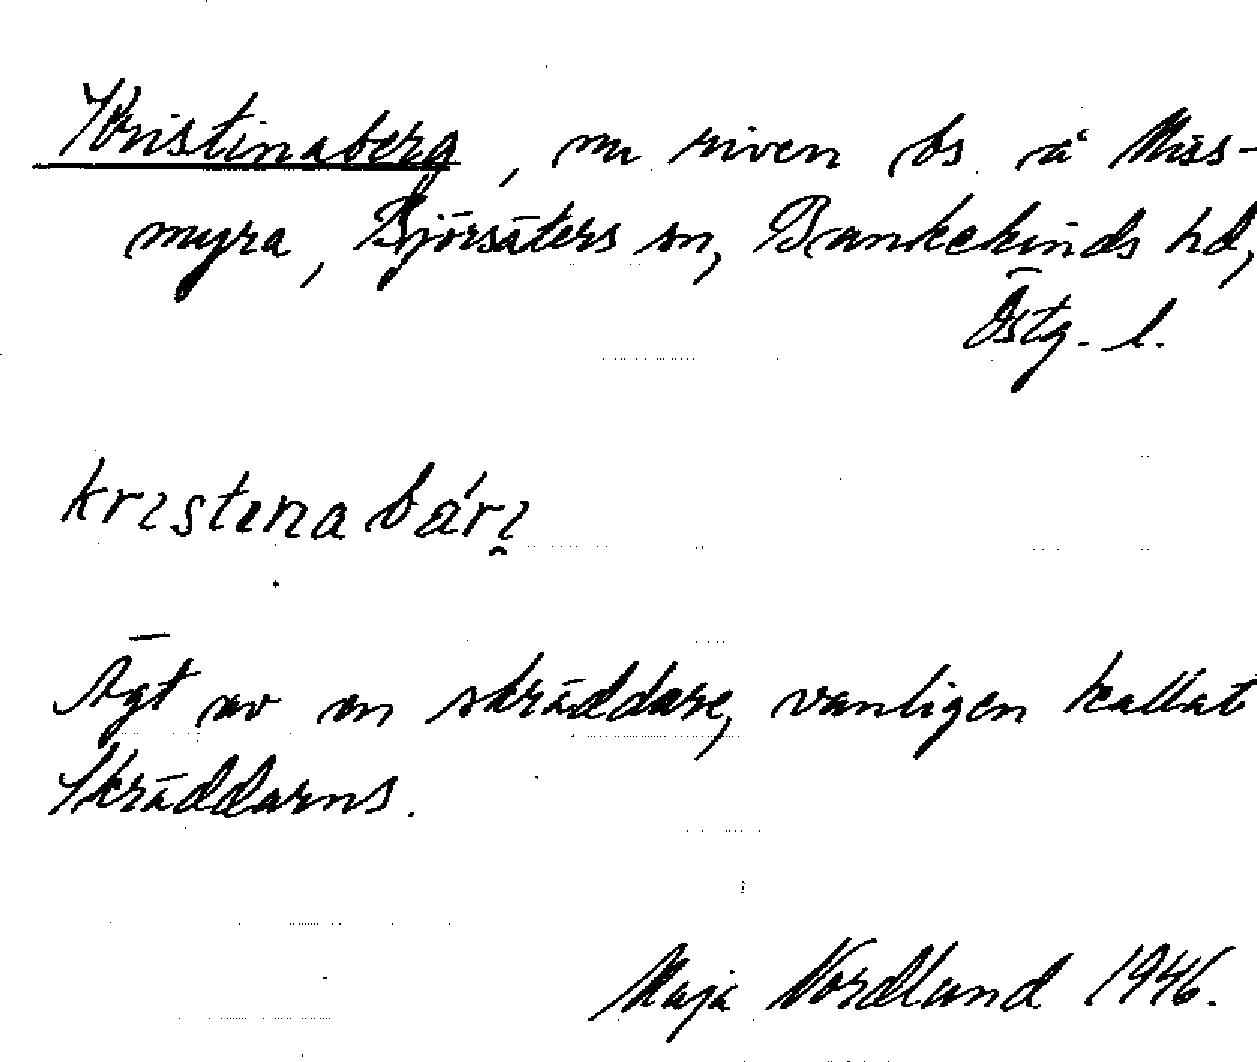 Kristinaberg, nu riven bs å Mis-
myra, Björsäters sn, Bankekinds hd,
Östg. l.
kristina bärj
Ägt av en skräddare, vanligen kallat
Skräddarns.
Maja Nordlund 1946.